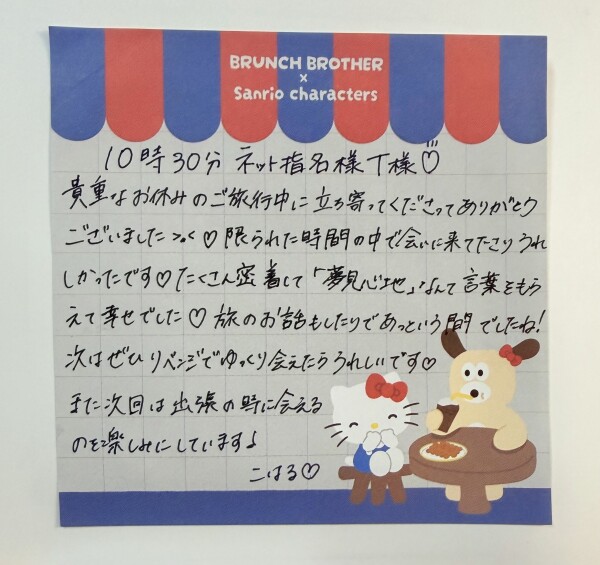 BRUNCH BROTHER
×
Sanrio characters
10時30分 ネット指名様 T様♡
貴重なお休みのご旅行中に立ち寄ってくださってありがとう
ございました>.<♡ 限られた時間の中で会いに来て下さりうれ
しかったです♡ たくさん密着して「夢見心地」なんて言葉をもら
えて幸せでした♡ 旅のお話もしたりであっという間でしたね!
次はぜひリベンジでゆっくり会えたらうれしいです♡
また次回は出張の時に会える
のを楽しみにしています♪
こはる♡